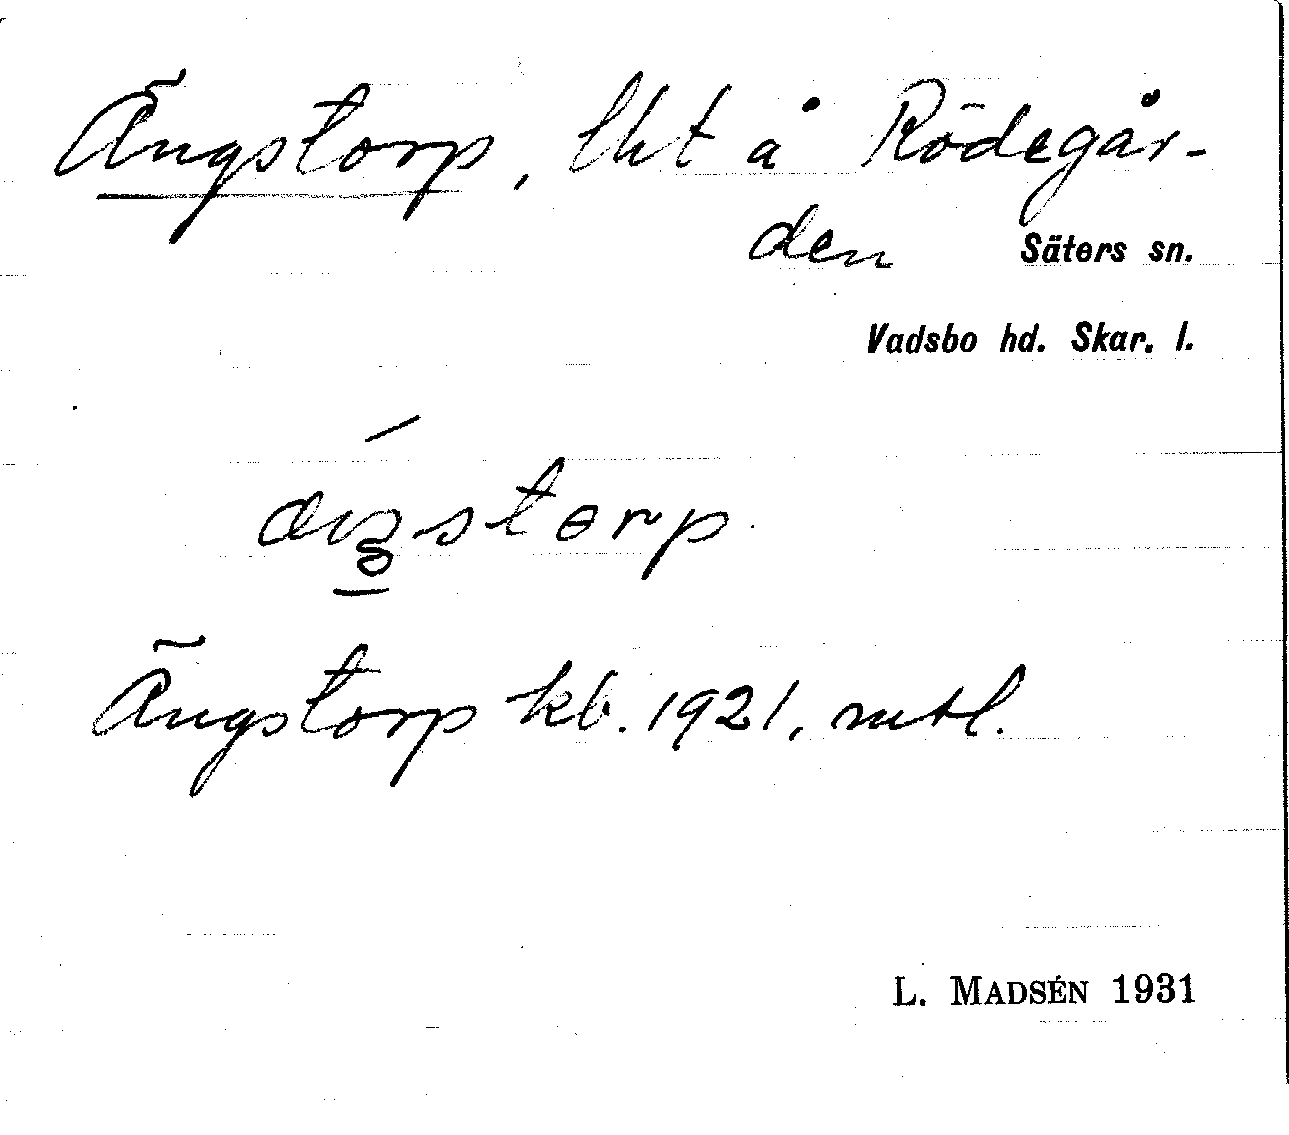 Ängstorp, lht å Rödegår-
den Säters sn.
Vadsbo hd. Skar. l.
Ängstorp kb. 1921, mtl.
L. MADSÉN 1931